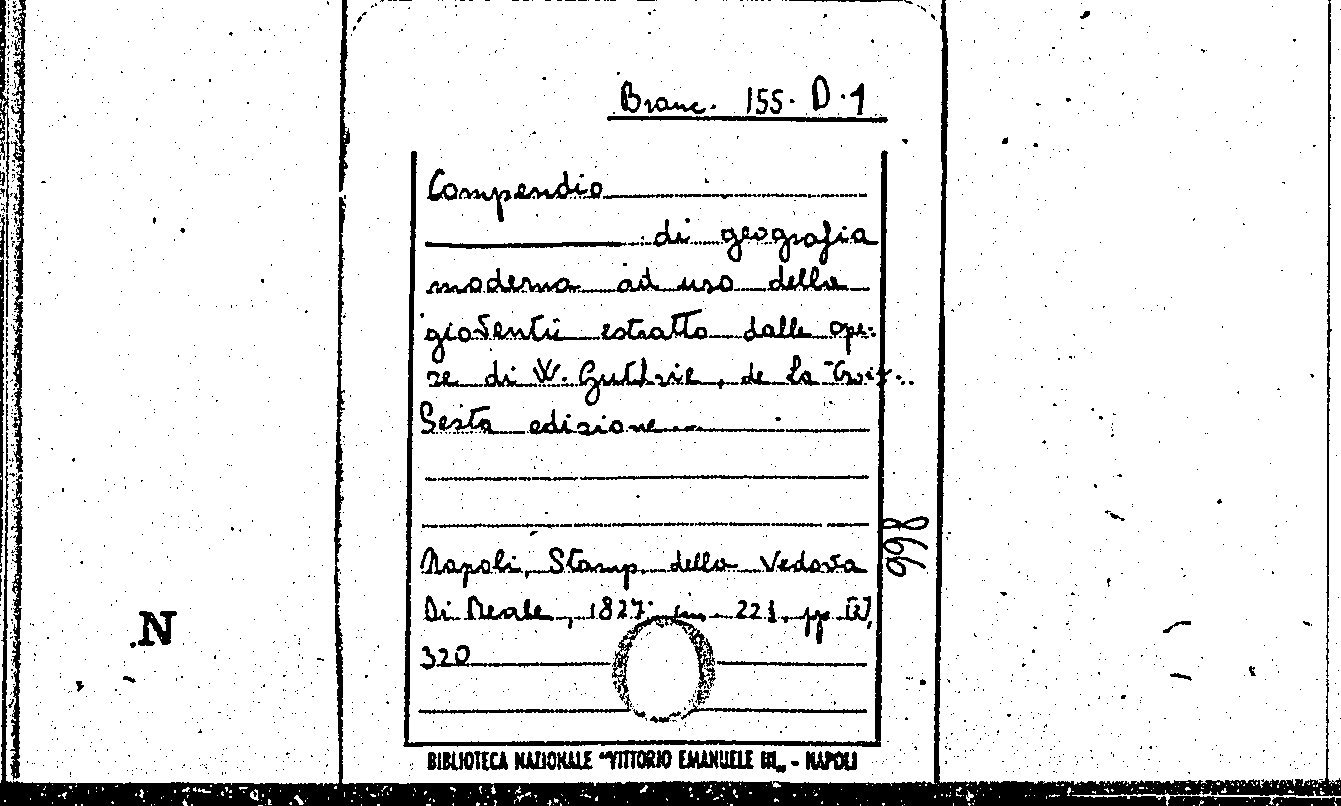 Branc. 155. D.1
Compendio
di geografia
moderna ad uso della
gioventù estratto dalle ope-
re di W. Guthrie, de La Croix..
Sesta edizione...
Napoli, Stamp. della Vedova
Di Reale, 1827; in 22
pp
320
866
N
BIBLIOTECA NAZIONALE "VITTORIO EMANUELE III„ - NAPOLI